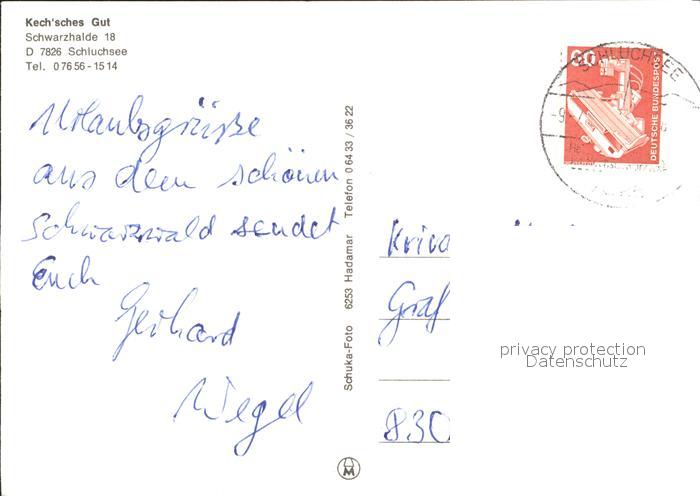 Kech'sches Gut
Schwarzhalde 18
D 7826 Schluchsee
Tel. 07656-1514
Urlaubsgrüße
aus dem schönen
Schwarzwald sendet
Euch
Gerhard
Wiegel
Schuka-Foto 6253 Hadamar Telefon 06433/3622
60
DEUTSCHE BUNDESPOST
SCHLUCHSEE
Graf
830
privacy protection
Datenschutz